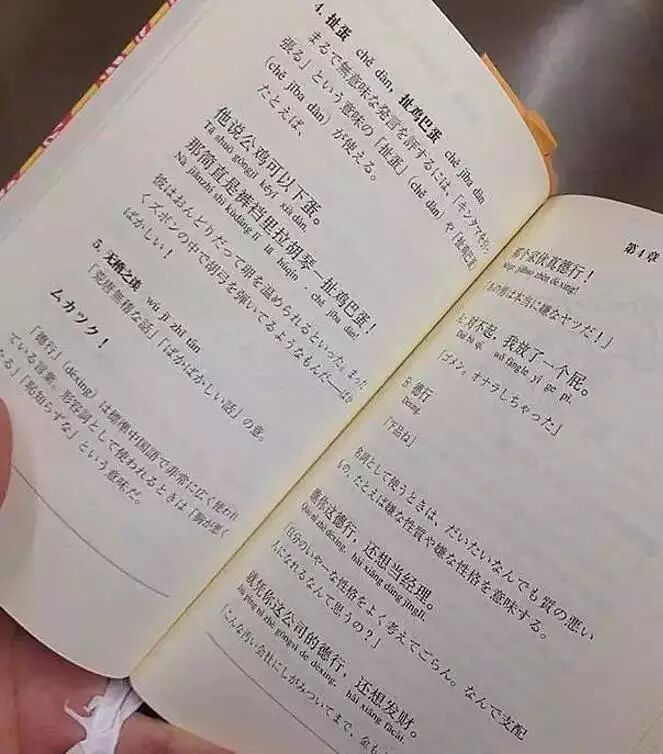 4. 扯蛋 chě dàn, 扯鸡巴蛋 chě jība dàn
まるで無意味な発言を評するには、「キンタマを引っ
張る」という意味の「扯蛋」(chě dàn) や「扯鸡巴蛋」
(chě jība dàn) が使える。
たとえば、
他说公鸡可以下蛋。
Tā shuō gōngjī kěyǐ xià dàn.
那简直是裤裆里拉胡琴—扯鸡巴蛋!
Nà jiǎnzhí shì kùdāng lǐ lā húqin - chě jība dàn!
彼はおんどりだって卵を温められるといった。まった
くズボンの中で胡弓を弾いてるようなもんだ—ば
ばかしい!
5. 无稽之谈 wú jī zhī tán
「荒唐無稽な話」「ばかばかしい話」の意。
ムカツク!
「德行」(déxing) は標準中国語で非常に広く使われ
ている言葉。形容詞として使われるときは「胸が悪く
なる」「恥知らずな」という意味だ。
第4章
那个家伙真德行!
jiāhuo zhēn déxing!
男は本当に嫌なヤツだ!」
对不起, 我放了一个屁。
Duì bu qǐ, wǒ fàngle yí ge pì.
「ゴメン。オナラしちゃった」
德行
Déxing.
「下品ね」
名詞として使うときは、だいたいなんでも質の悪い
もの、たとえば嫌な性質や嫌な性格を意味する。
瞧你这德行, 还想当经理。
Qiáo nǐ zhè déxing, hái xiǎng dāng jīnglǐ.
「自分のいやーな性格をよく考えてごらん。なんで支配
人になれるなんて思うの?」
就凭你这公司的德行, 还想发财。
Jiù píng nǐ zhè gōngsī de déxing, hái xiǎng fācái.
「こんな汚い会社にしがみついてまで、金も